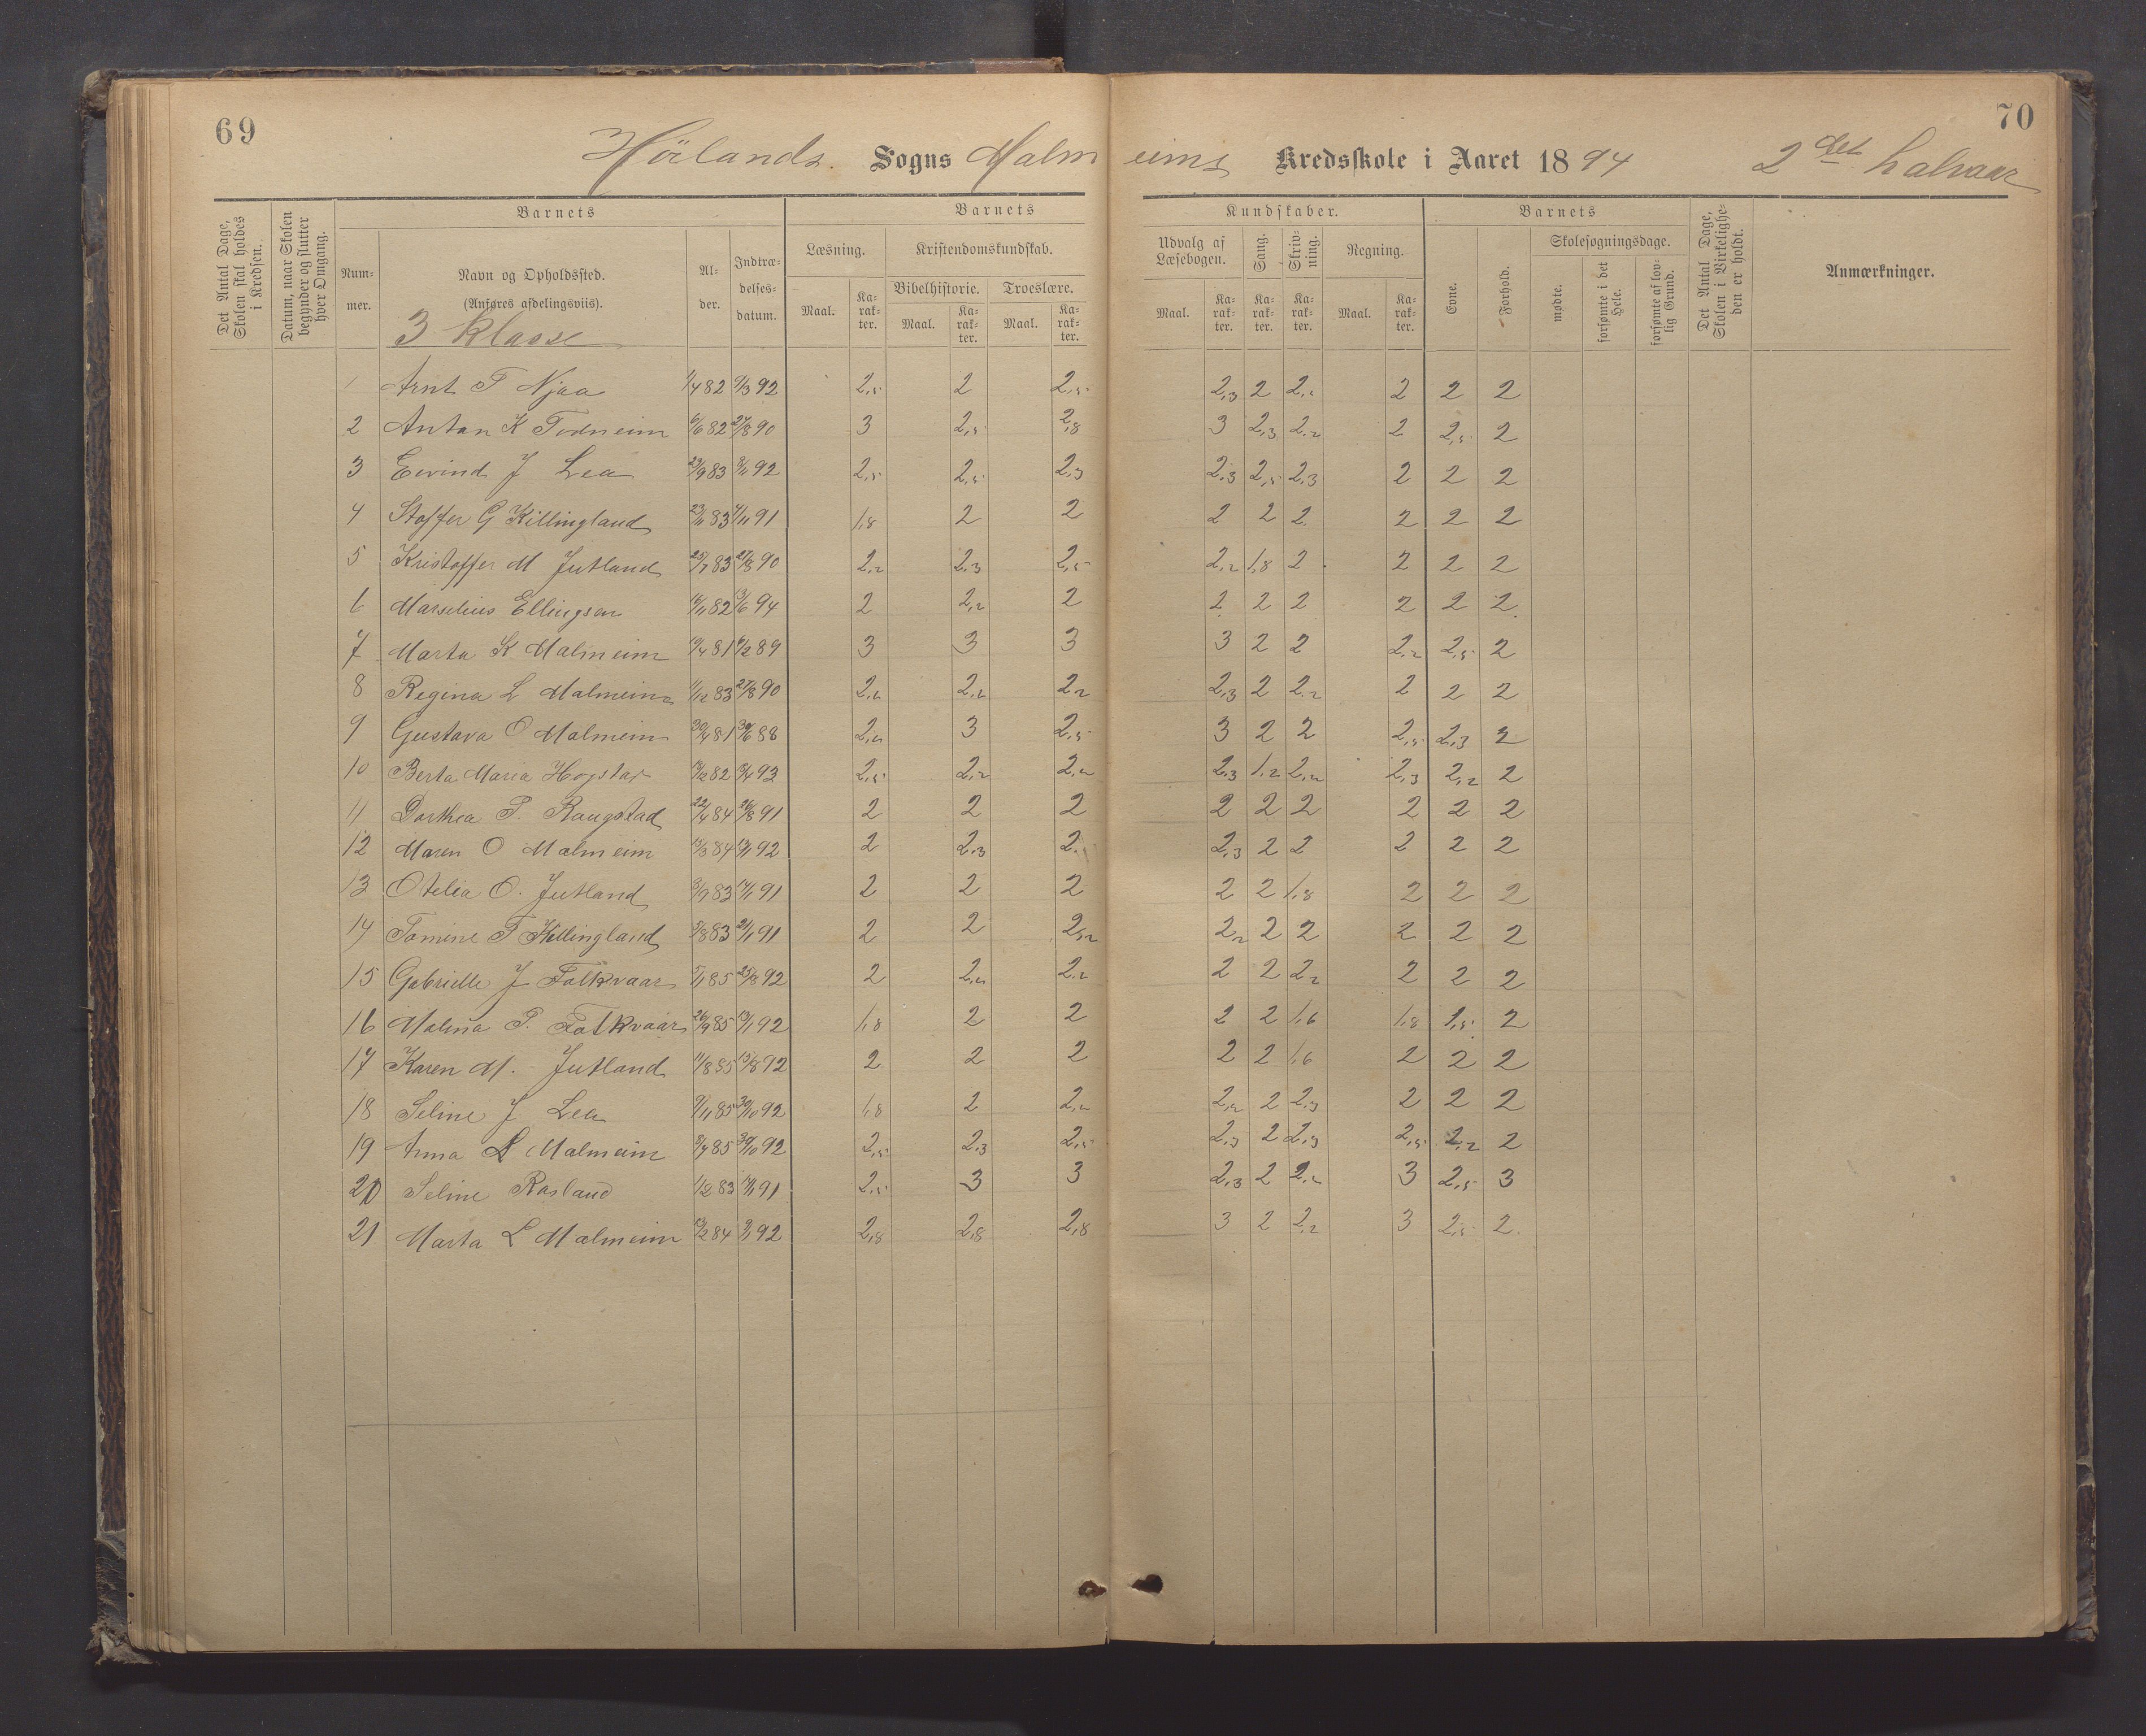 69
70
Höilands Sogns Malmeims Kredsskole i Aaret 1894 2det halvaar
Det Antal Dage, Skolen skal holdes i Kredsen.
Datum, naar Skolen begynder og slutter hver Omgang.
Barnets
Barnets
Kundskaber.
Barnets
Det Antal Dage, Skolen i Virkelighe-den er holdt.
Anmærkninger.
Num-mer.
Navn og Opholdssted.
(Anføres afdelingsviis).
3 Klasse
Al-der.
Indtræ-delses-datum.
Læsning.
Kristendomskundskab.
Bibelhistorie.
Troeslære.
Udvalg af Læsebogen.
Sang.
Skriv-ning.
Regning.
Evne.
Forhold.
Skolesøgningsdage.
mødte.
forsømte i det Hele.
forsømte af lov-lig Grund.
Maal. Ka-rak-ter. Maal. Ka-rak-ter. Maal. Ka-rak-ter. Maal. Ka-rak-ter. Ka-rak-ter. Ka-rak-ter. Maal. Ka-rak-ter.
1 Arnt T Njaa 1/4 82 9/3 92 2,5 2 2,5 2,3 2 2,2 2 2 2
2 Anton K 6/6 82 27/8 90 3 2,5 2,8 3 2,3 2,2 2 2,5 2
3 Eivind J Lea 23/9 83 92 2,5 2,5 2,3 2,3 2,5 2,3 2 2 2
4 Stoffer G Killingland 23/11 83 4/11 91 1,8 2 2 2 2 2 2 2 2
5 Kristoffer M Jutland 25/7 83 27/8 90 2,2 2,3 2,5 2,2 1,8 2 2 2 2
6 Marselius Ellingsen 82 13/6 94 2 2,2 2 2 2 2 2 2 2
7 Marta K Malmeim 19/4 81 6/2 89 3 3 3 3 2 2 2,2 2,5 2
8 Regina L Malmeim 11/12 83 27/8 90 2,2 2,2 2,2 2,3 2 2,2 2 2 2
9 Gustava O Malmeim 30/4 81 30/6 88 2,2 3 2,5 3 2 2 2,5 2,3 2
10 Berta Maria Hogstad 82 93 2,5 2,2 2,2 2,3 1,2 2,2 2,3 2,2 2
11 Dorthea P. Raugstad 22/4 84 26/8 91 2 2 2 2 2 2 2 2 2
12 Maren O Malmeim 15/3 84 92 2 2,3 2 2,3 2 2 2 2 2
13 Otelia O. Jutland 3/9 83 91 2 2 2 2 2 1,8 2 2 2
14 Tomine T Killingland 83 91 2 2 2,2 2,2 2 2 2 2 2
15 Gabrielle J Folkvaar 5/1 85 25/8 92 2 2,2 2,2 2 2 2,2 2 2 2
16 Malina P. Folkvaar 26/9 85 13/1 92 1,8 2 2 2 2 1,6 1,8 1,5 2
17 Karen M. Jutland 11/8 85 15/8 92 2 2 2 2 2 1,6 2 2 2
18 Seline J Lea 9/11 85 30/10 92 1,8 2 2,2 2,2 2 2,3 2 2 2
19 Anna L Malmeim 85 30/10 92 2,5 2,3 2,5 2,3 2 2,3 2,5 2,2 2
20 Seline Rosland 1/12 83 91 2,5 3 3 2,3 2 2,2 3 2,5 3
21 Marta L Malmeim 84 92 2,8 2,8 2,8 3 2 2,2 3 2,5 2